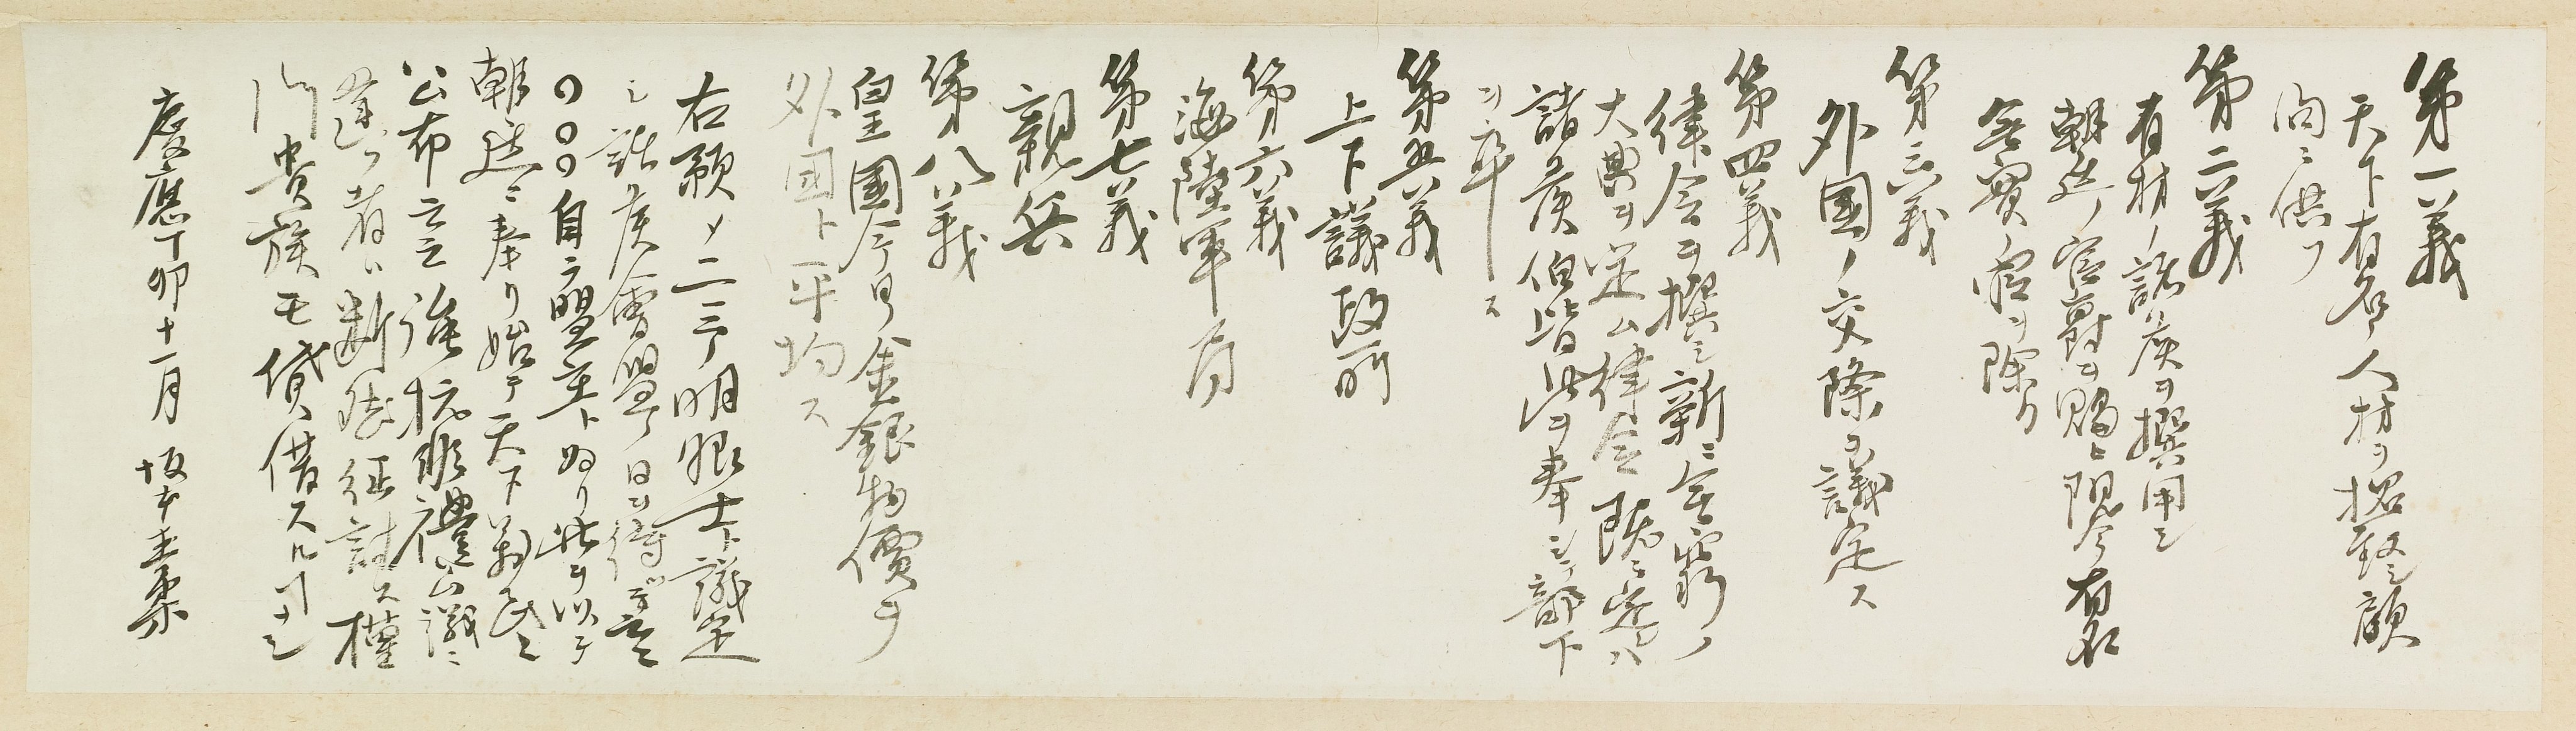 第一義
天下有名ノ人材ヲ招致シ顧
問ニ供フ
第二義
有材ノ諸侯ヲ撰用シ
朝廷ノ官爵ヲ賜ヒ現今有名
無実ノ官ヲ除ク
第三義
外国ノ交際ヲ議定ス
第四義
律令ヲ撰シ新ニ無窮ノ
大典ヲ定ム律令既ニ定レハ
諸侯伯皆此ヲ奉シテ部下
ヲ率ス
第五義
上下議政所
第六義
海陸軍局
第七義
親兵
第八義
皇国今日ノ金銀物価ヲ
外国ト平均ス
右預メ二三ノ明眼士ト議定
シ諸侯会盟ノ日ヲ待ツテ云云
〇〇〇自ラ盟主ト為リ此ヲ以テ
朝廷ニ奉リ始テ天下万民ニ
公布云云強抗非礼公議ニ
違フ者ハ断然征討ス権
門貴族モ貸借スル事ナシ
慶応丁卯十一月 坂本直柔